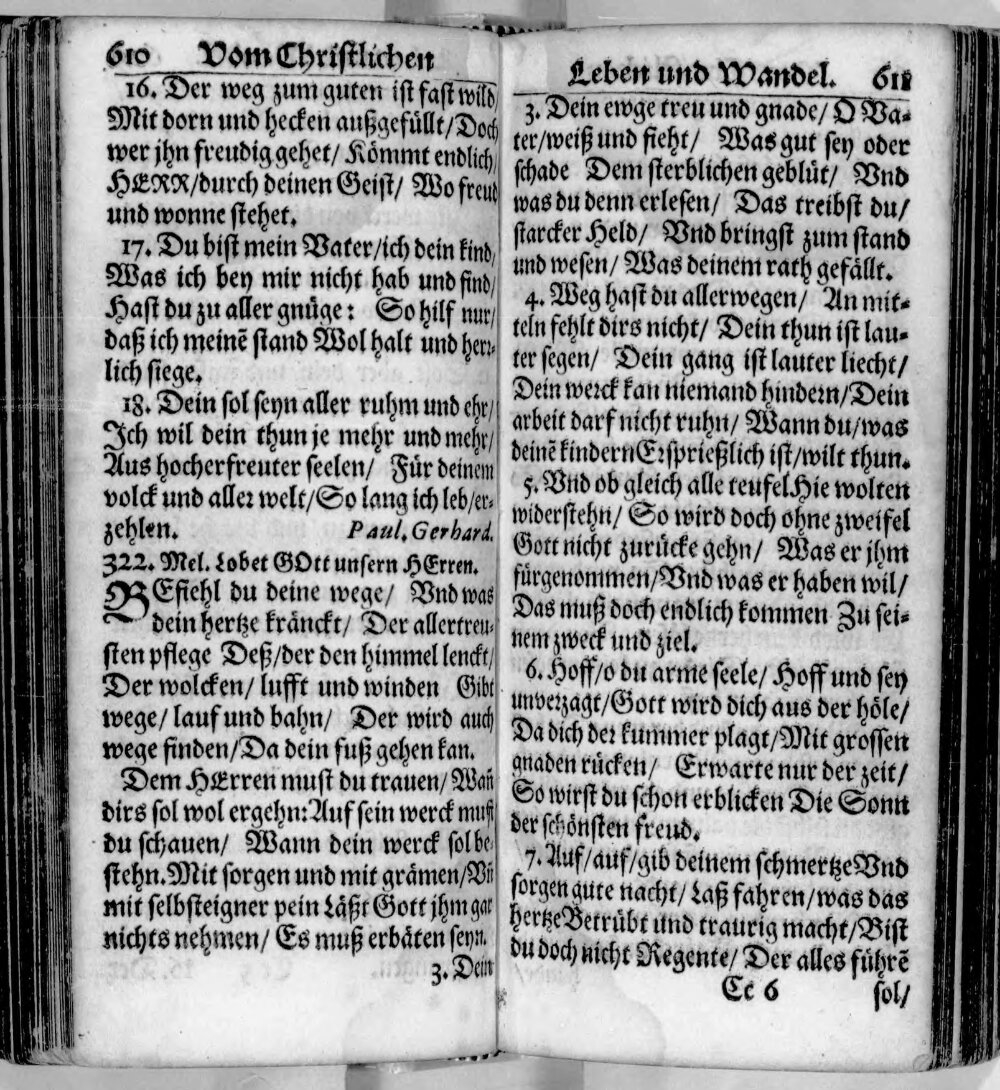 610 Vom Christlichen
16. Der weg zum guten ist fast wild/
Mit dorn und hecken außgefüllt/Doch
wer jhn freudig gehet/ Kömmt endlich/
HERR/durch deinen Geist/ Wo freud
und wonne stehet.
17. Du bist mein Vater/ich dein kind/
Was ich bey mir nicht hab und find/
Hast du zu aller gnüge: So hilf nur/
daß ich meinẽ stand Wol halt und herr-
lich siege.
18. Dein sol seyn aller ruhm und ehr/
Ich wil dein thun je mehr und mehr/
Aus hocherfreuter seelen/ Für deinem
volck und aller welt/So lang ich leb/er-
zehlen. Paul. Gerhard.
322. Mel. Lobet GOtt unsern HErren.
BEfiehl du deine wege/ Vnd was
dein hertze kränckt/ Der allertreu-
sten pflege Deß/der den himmel lenckt/
Der wolcken/ lufft und winden Gibt
wege/ lauf und bahn/ Der wird auch
wege finden/Da dein fuß gehen kan.
Dem HErren must du trauen/ Wañ
dirs sol wol ergehn: Auf sein werck must
du schauen/ Wann dein werck sol be-
stehn. Mit sorgen und mit grämen/Vñ
mit selbsteigner pein Läßt Gott jhm gar
nichts nehmen/ Es muß erbäten seyn.
3. Dein
Leben und Wandel. 611
3. Dein ewge treu und gnade/ O Va-
ter/weiß und sieht/ Was gut sey oder
schade Dem sterblichen geblüt/ Vnd
was du denn erlesen/ Das treibst du/
starcker Held/ Vnd bringst zum stand
und wesen/ Was deinem rath gefällt.
4. Weg hast du allerwegen/ An mit-
teln fehlt dirs nicht/ Dein thun ist lau-
ter segen/ Dein gang ist lauter liecht/
Dein werck kan niemand hindern/Dein
arbeit darf nicht ruhn/ Wann du/was
deinẽ kindern Ersprießlich ist/wilt thun.
5. Vnd ob gleich alle teufel Hie wolten
widerstehn/ So wird doch ohne zweifel
Gott nicht zurücke gehn/ Was er jhm
fürgenommen/Vnd was er haben wil/
Das muß doch endlich kommen Zu sei-
nem zweck und ziel.
6. Hoff/o du arme seele/ Hoff und sey
unverzagt/Gott wird dich aus der höle/
Da dich der kummer plagt/Mit grossen
gnaden rücken/ Erwarte nur der zeit/
So wirst du schon erblicken Die Sonn
der schönsten freud.
7. Auf/auf/gib deinem schmertze Vnd
sorgen gute nacht/ Laß fahren/was das
hertze Betrübt und traurig macht/Bist
du doch nicht Regente/ Der alles führẽ
Cc 6 sol/